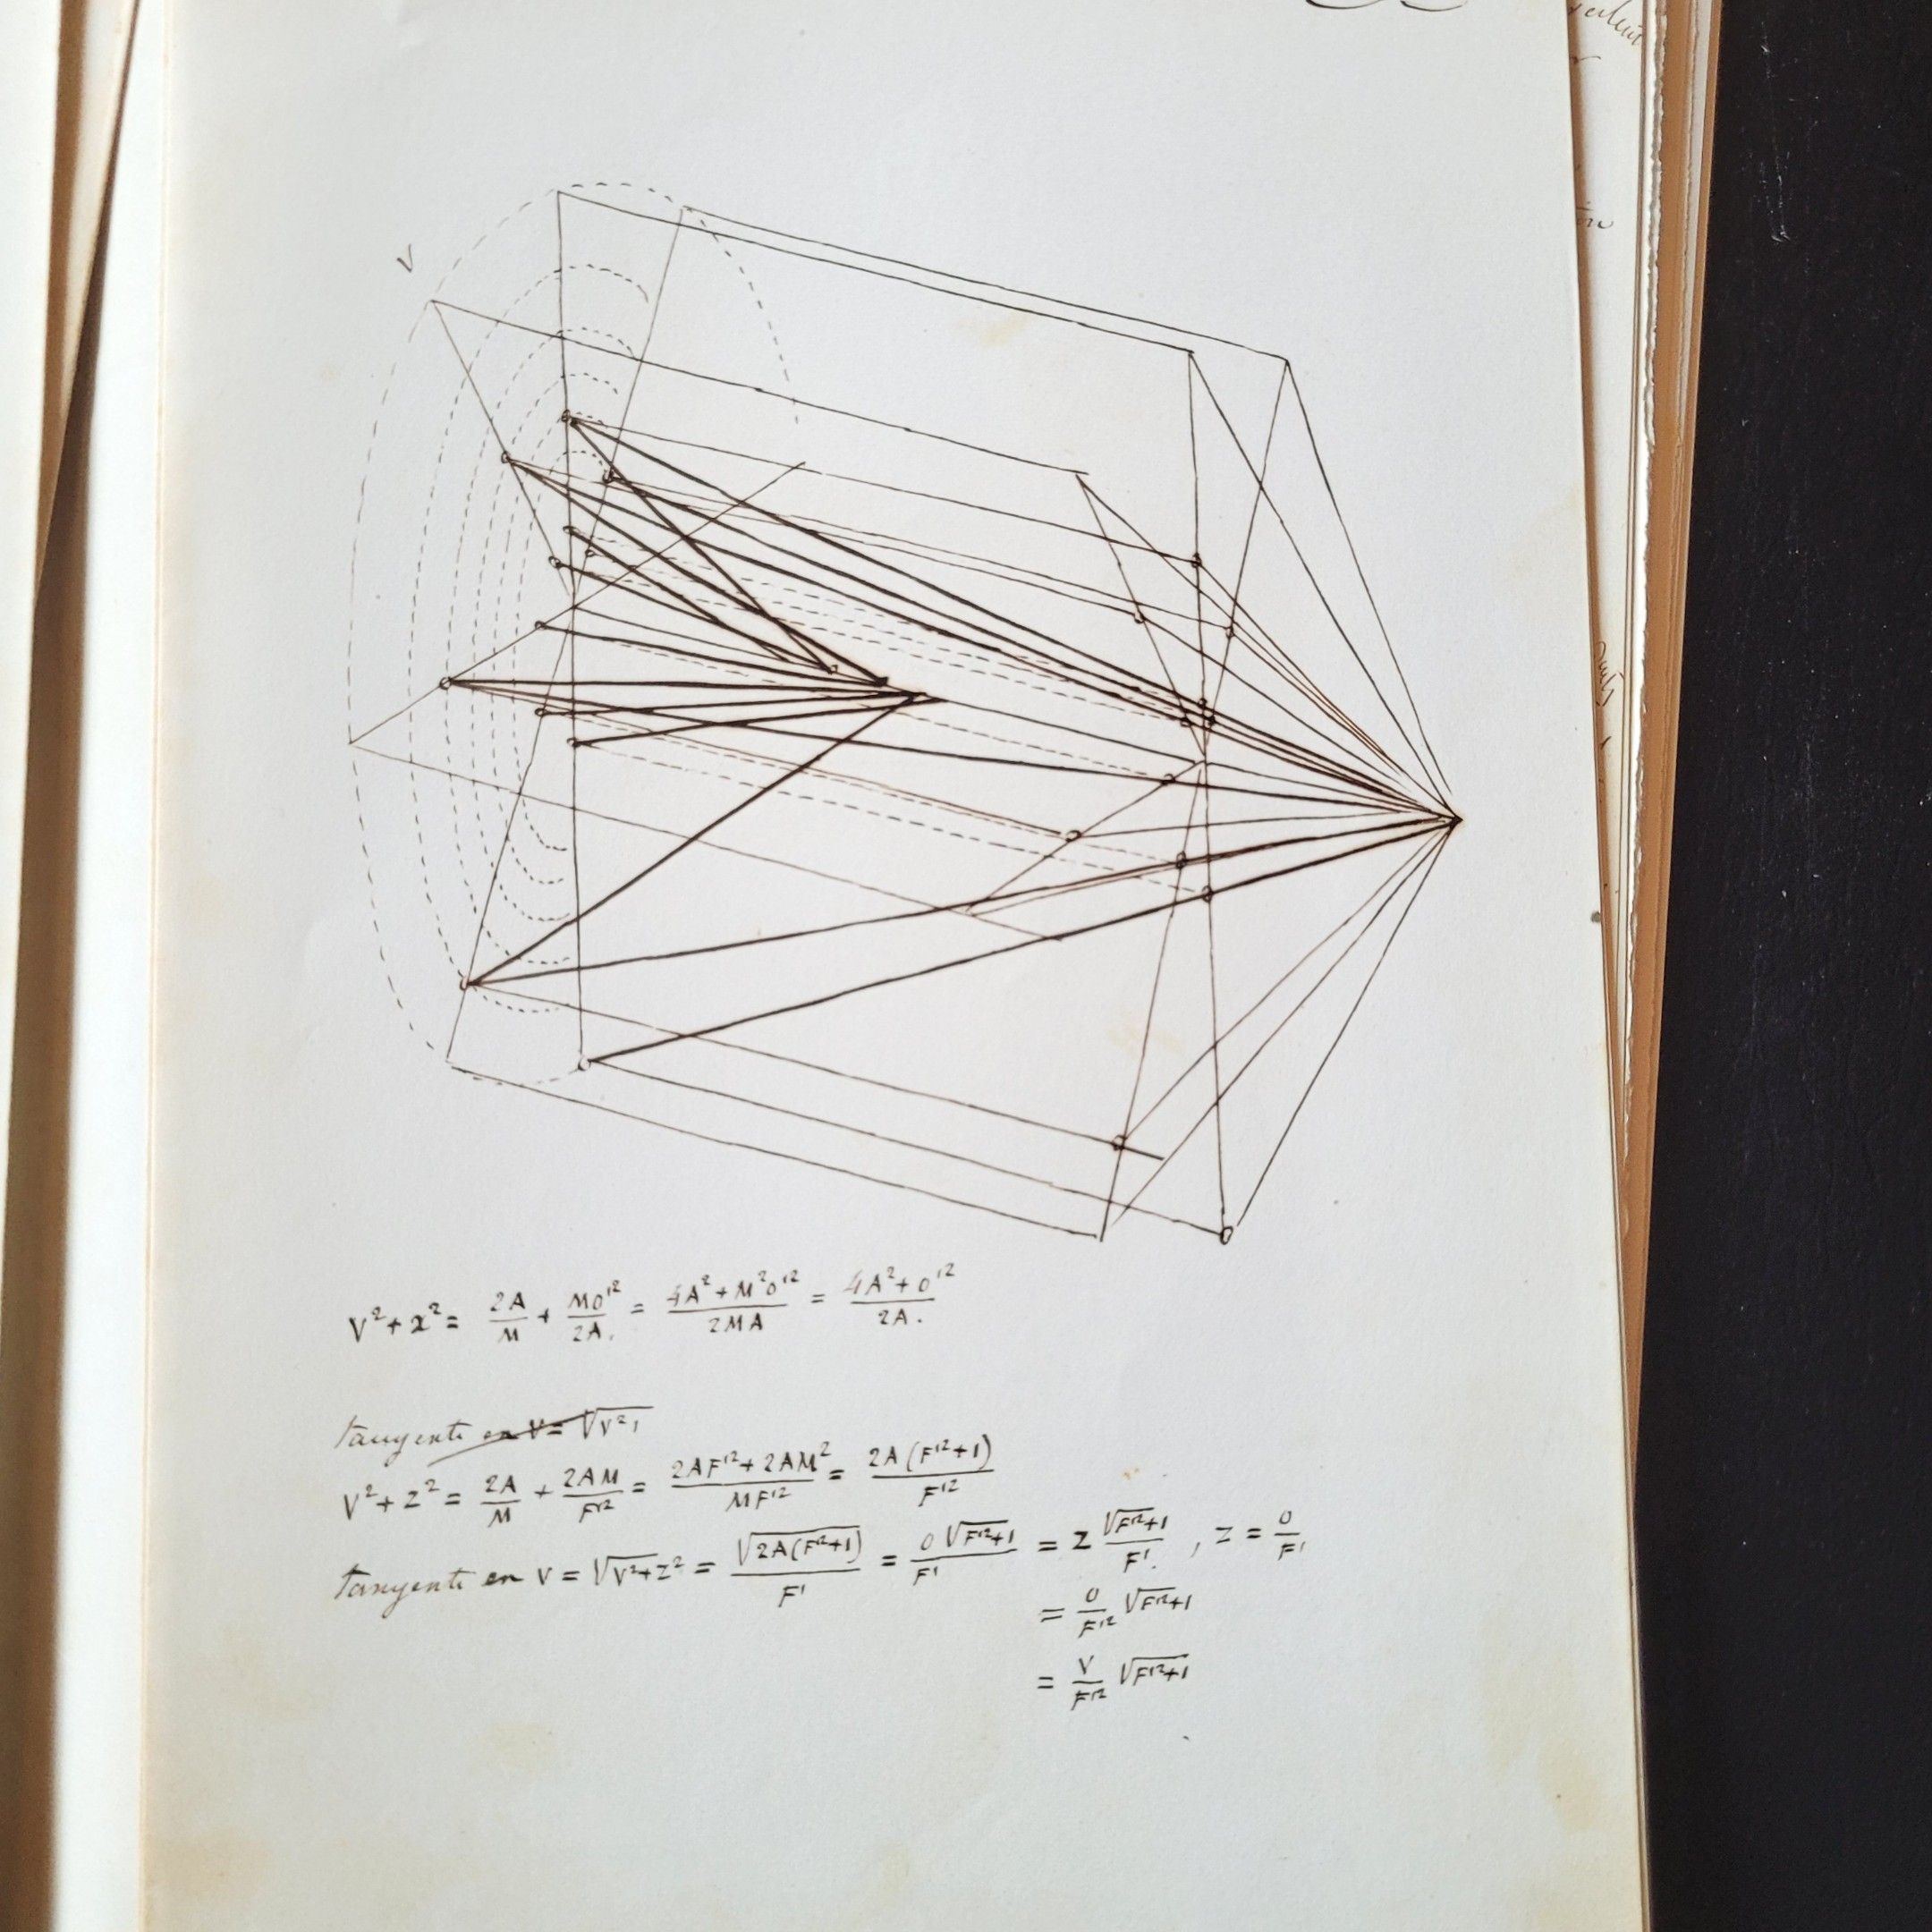 V
V² + x² = 2A/M + MO'²/2A. = 4A² + M²O'²/2MA = 4A² + O'²/2A.
tangente en V = √V²1
V² + z² = 2A/M + 2AM/F'² = 2AF'² + 2AM²/MF'² = 2A(F'²+1)/F'²
tangente en V = √V²+z² = √2A(F'²+1)/F' = O√F'²+1/F' = z √F'²+1/F'. , z = O/F'
= O/F'² √F'²+1
= V/F'² √F'²+1